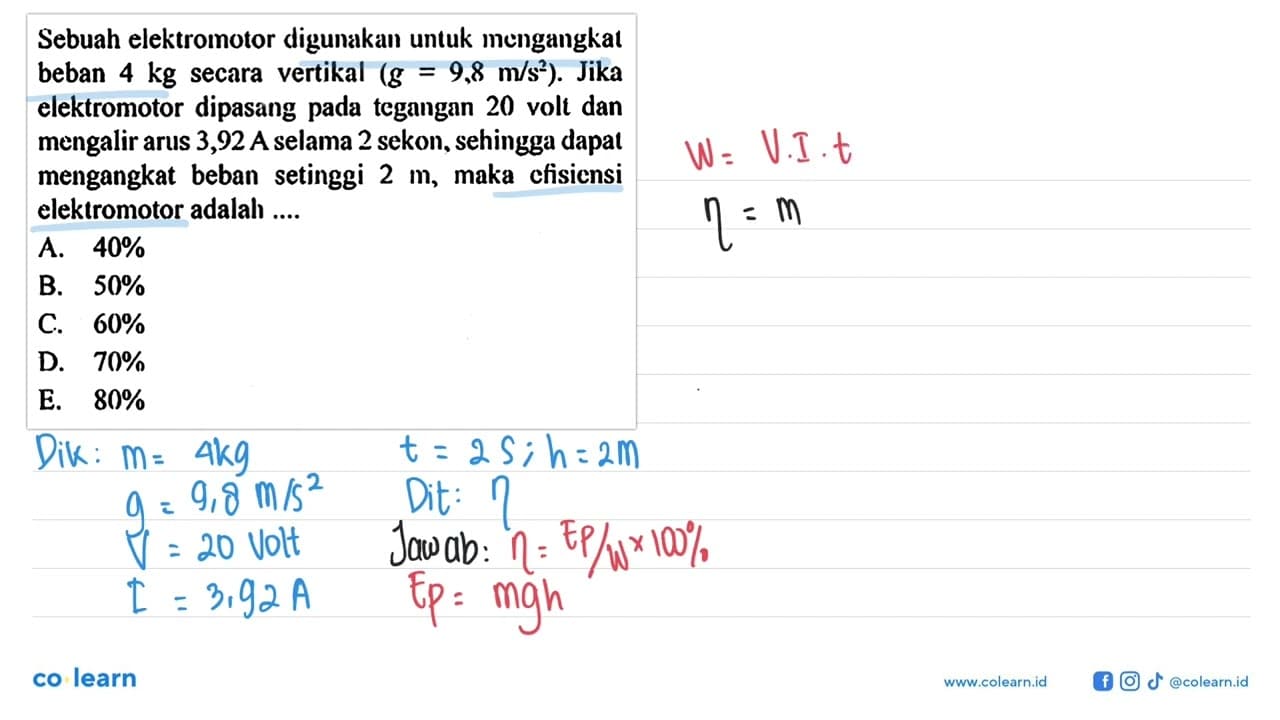 Sebuah elektromotor digunakan untuk mengangkat
beban 4 kg secara vertikal (g = 9,8 m/s²). Jika
elektromotor dipasang pada tegangan 20 volt dan
mengalir arus 3,92 A selama 2 sekon, sehingga dapat
mengangkat beban setinggi 2 m, maka efisiensi
elektromotor adalah ....
A. 40%
B. 50%
C. 60%
D. 70%
E. 80%
W = V.I.t
η = m
Dik: m = 4kg
g = 9,8 m/s²
V = 20 Volt
I = 3,92 A
t = 2 s ; h = 2m
Dit: η
Jawab: η = Ep/W × 100%
Ep = mgh
co learn
www.colearn.id
@colearn.id